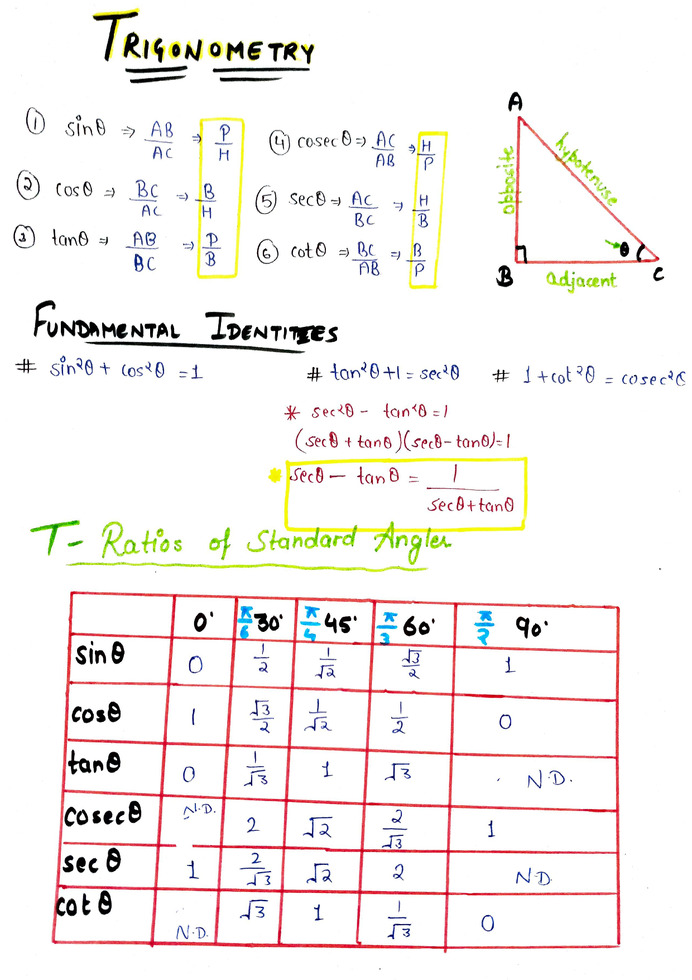 TRIGONOMETRY
① sinθ ⇒ AB/AC ⇒ P/H
② cosθ ⇒ BC/AC ⇒ B/H
③ tanθ ⇒ AB/BC ⇒ P/B
④ cosecθ ⇒ AC/AB ⇒ H/P
⑤ secθ ⇒ AC/BC ⇒ H/B
⑥ cotθ ⇒ BC/AB ⇒ B/P
A
opposite
hypotenuse
θ
B
C
adjacent
FUNDAMENTAL IDENTITIES
# sin²θ + cos²θ = 1
# tan²θ + 1 = sec²θ
# 1 + cot²θ = cosec²θ
* sec²θ - tan²θ = 1
(secθ + tanθ)(secθ - tanθ) = 1
* secθ - tanθ = 1/(secθ + tanθ)
T- Ratios of Standard Angles
0° π/6 30° π/4 45° π/3 60° π/2 90°
sinθ 0 1/2 1/√2 √3/2 1
cosθ 1 √3/2 1/√2 1/2 0
tanθ 0 1/√3 1 √3 N.D.
cosecθ N.D. 2 √2 2/√3 1
secθ 1 2/√3 √2 2 N.D.
cotθ N.D. √3 1 1/√3 0